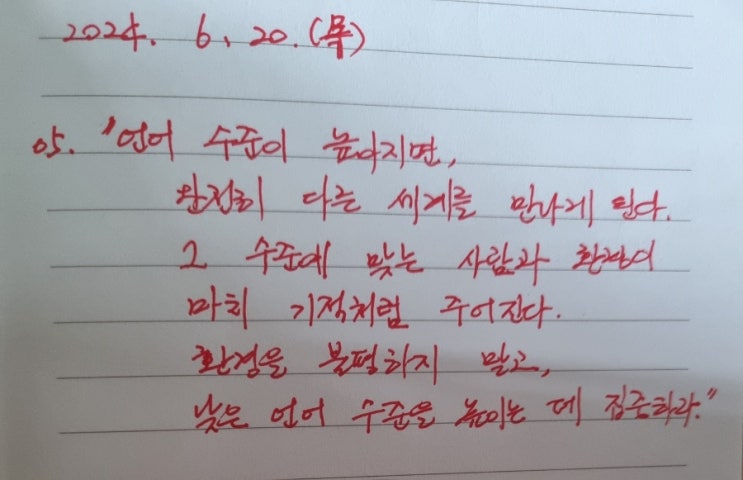 2024. 6. 20. (목)
05. "언어 수준이 높아지면,
완전히 다른 세계를 만나게 된다.
그 수준에 맞는 사람과 환경이
마치 기적처럼 주어진다.
환경을 불평하지 말고,
낮은 언어 수준을 높이는 데 집중하라."